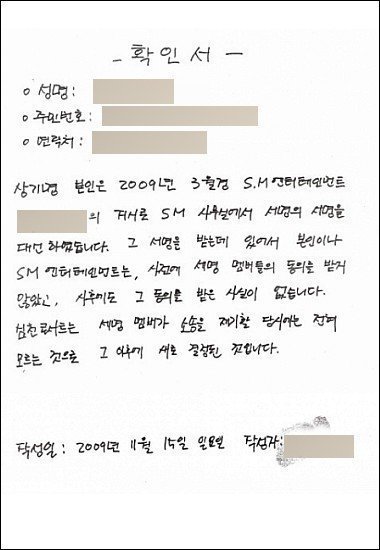 - 확인서 -
o 성명:
o 주민번호:
o 연락처:
상기명 본인은 2009년 3월경 S.M 엔터테인먼트
의 지시로 SM 사무실에서 세명의 서명을
대신 하였습니다. 그 서명을 받는데 있어서 본인이나
SM 엔터테인먼트는, 사전에 세명 멤버들의 동의를 받지
않았고, 사후에도 그 동의를 받은 사실이 없습니다.
심천콘서트는 세명 멤버가 소송을 제기할 당시에는 전혀
모르는 것으로 그 이후에 새로 결정된 것입니다.
작성일 : 2009년 11월 15일 일요일 작성자: